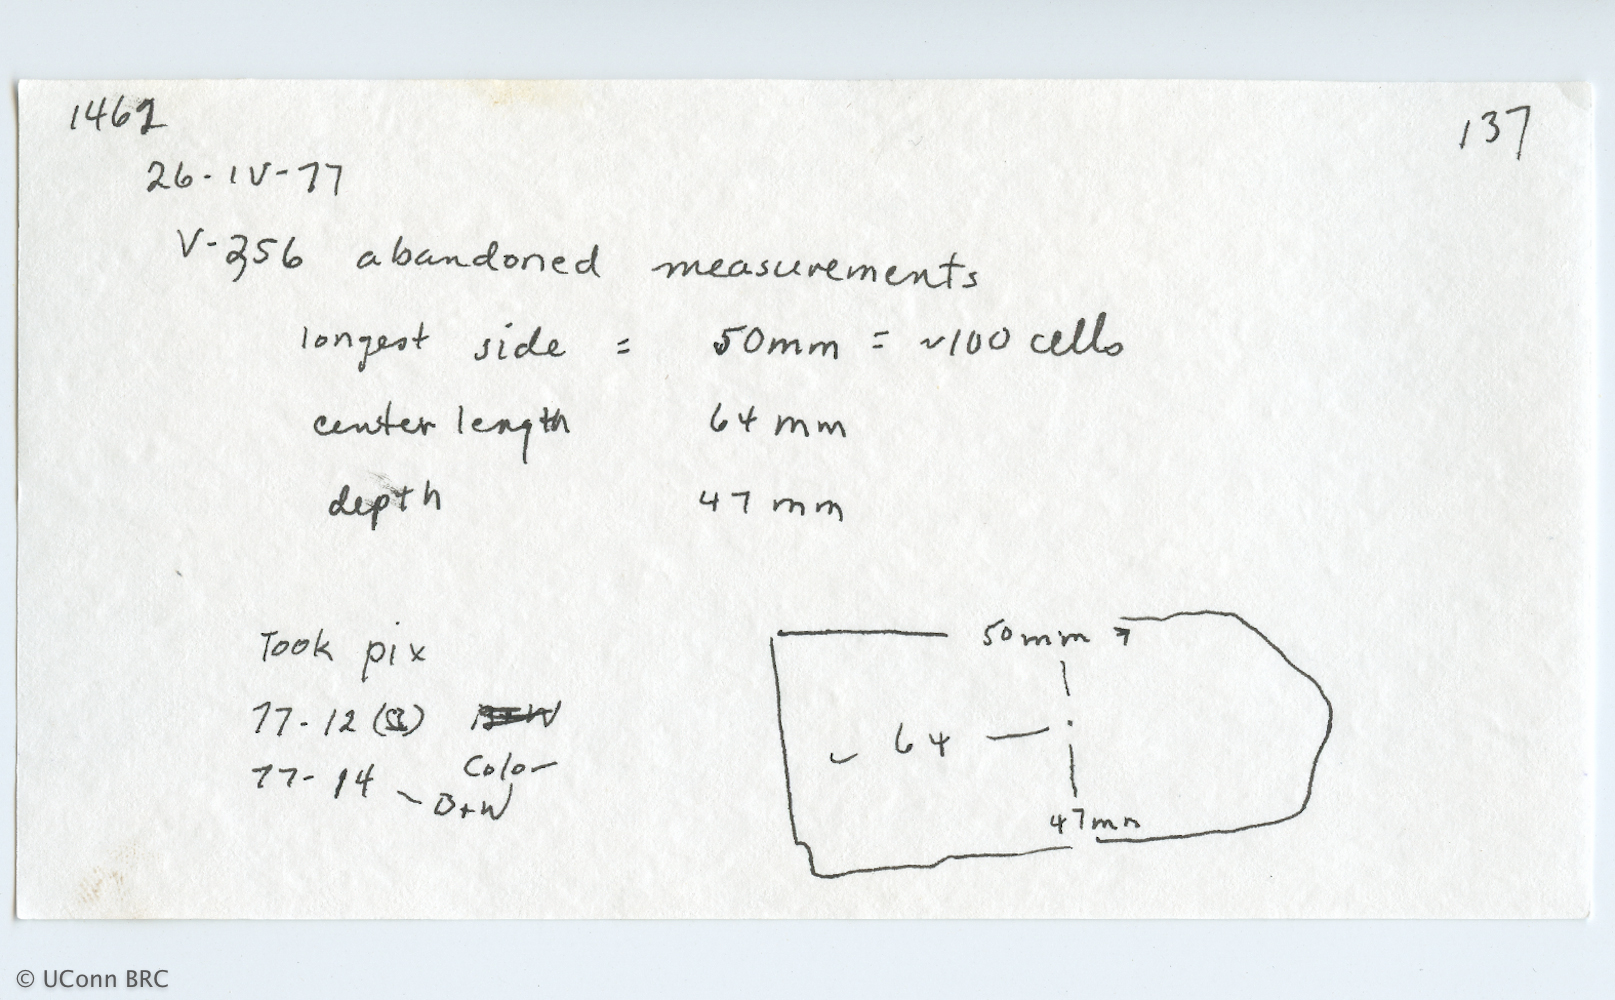 1462
137
26-IV-77
V-356 abandoned measurements
longest side = 50mm = ~100 cells
center length 64 mm
depth 47 mm
Took pix
77-12 ( )
Color
77-14 - B+W
50mm
64
47mm
© UConn BRC